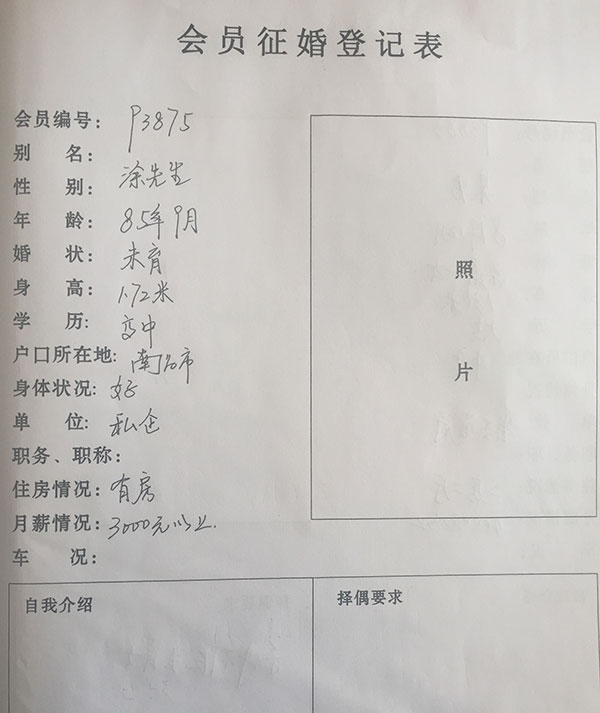 会员征婚登记表
会员编号: P3875
别 名:
性 别: 涂先生
年 龄: 85年9月
婚 状: 未育
身 高: 1.72米
学 历: 高中
户口所在地: 南昌市
身体状况: 好
单 位: 私企
职务、职称:
住房情况: 有房
月薪情况: 3000元以上.
车 况:
照
片
自我介绍
择偶要求